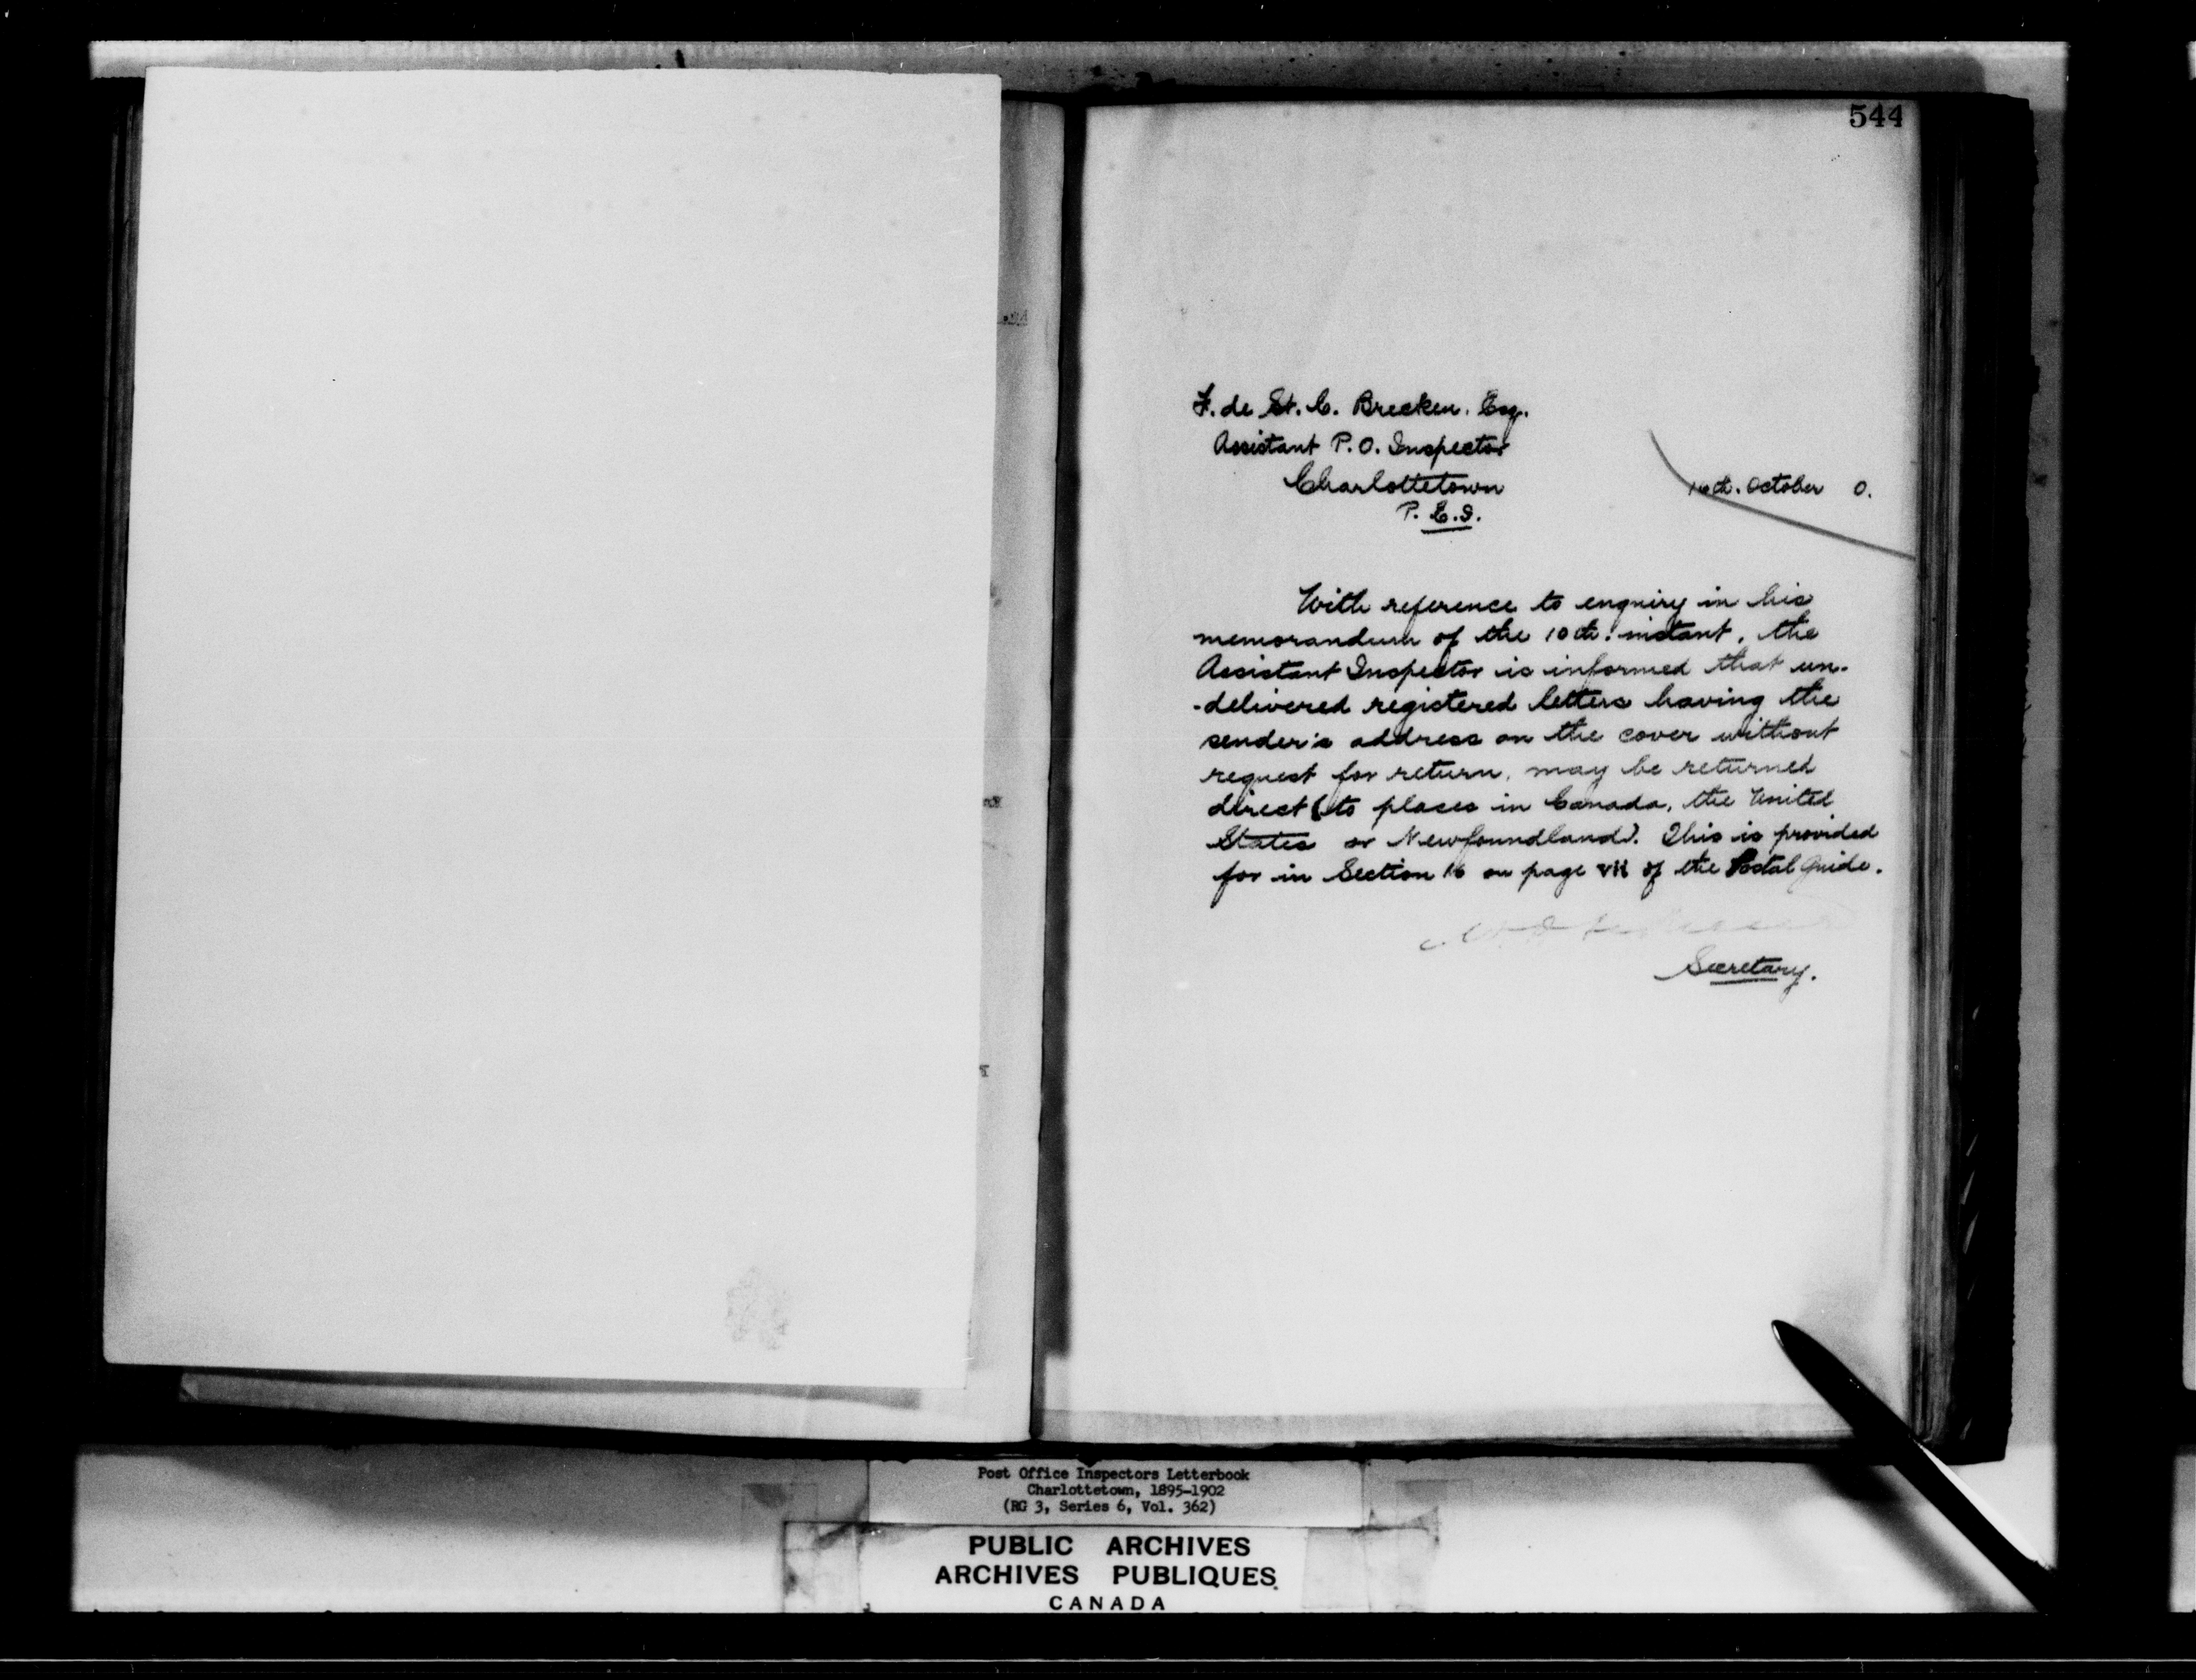 544
F. de St. C. Brecken. Esq.
Assistant P.O. Inspector
Charlottetown
16th. October 0.
P. E. I.
With reference to enquiry in his
memorandum of the 10th. instant, the
Assistant Inspector is informed that un-
-delivered registered letters having the
sender's address on the cover without
request for return, may be returned
direct (to places in Canada, the United
States or Newfoundland). This is provided
for in Section 16 on page vii of the Postal Guide.
Secretary.
Post Office Inspectors Letterbook
Charlottetown, 1895-1902
(RG 3, Series 6, Vol. 362)
PUBLIC ARCHIVES
ARCHIVES PUBLIQUES
CANADA